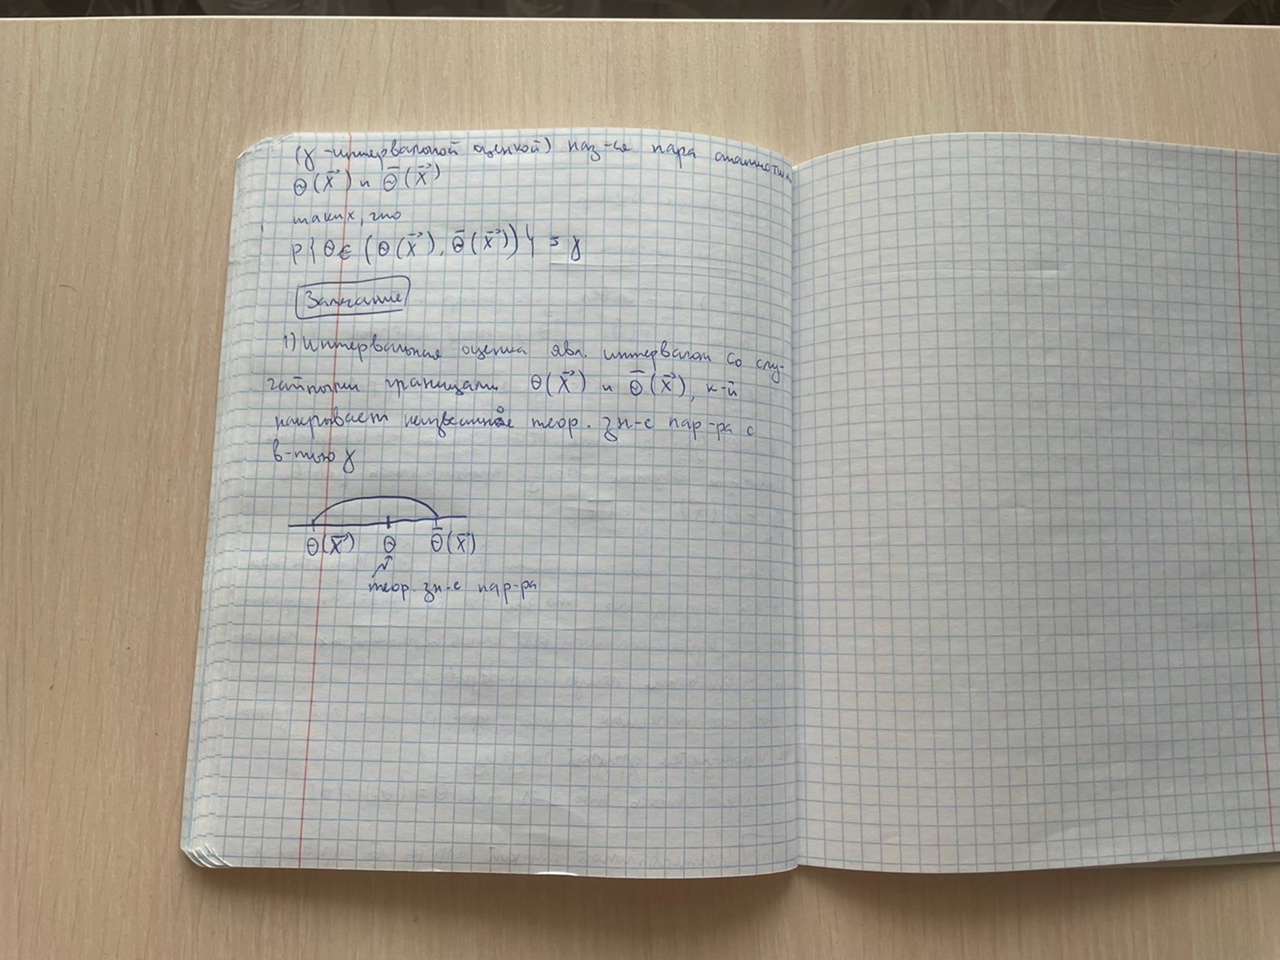 (γ-интервальной оценкой) наз-ся пара статистик
θ(X⃗) и θ̄(X⃗)
таких, что
P{θ∈(θ(X⃗), θ̄(X⃗))} = γ
Замечание
1) Интервальная оценка явл. интервалом со слу-
чайными границами θ(X⃗) и θ̄(X⃗), к-й
накрывает неизвестное теор. зн-е пар-ра с
в-тью γ
θ(X⃗) θ θ̄(X⃗)
теор. зн-е пар-ра